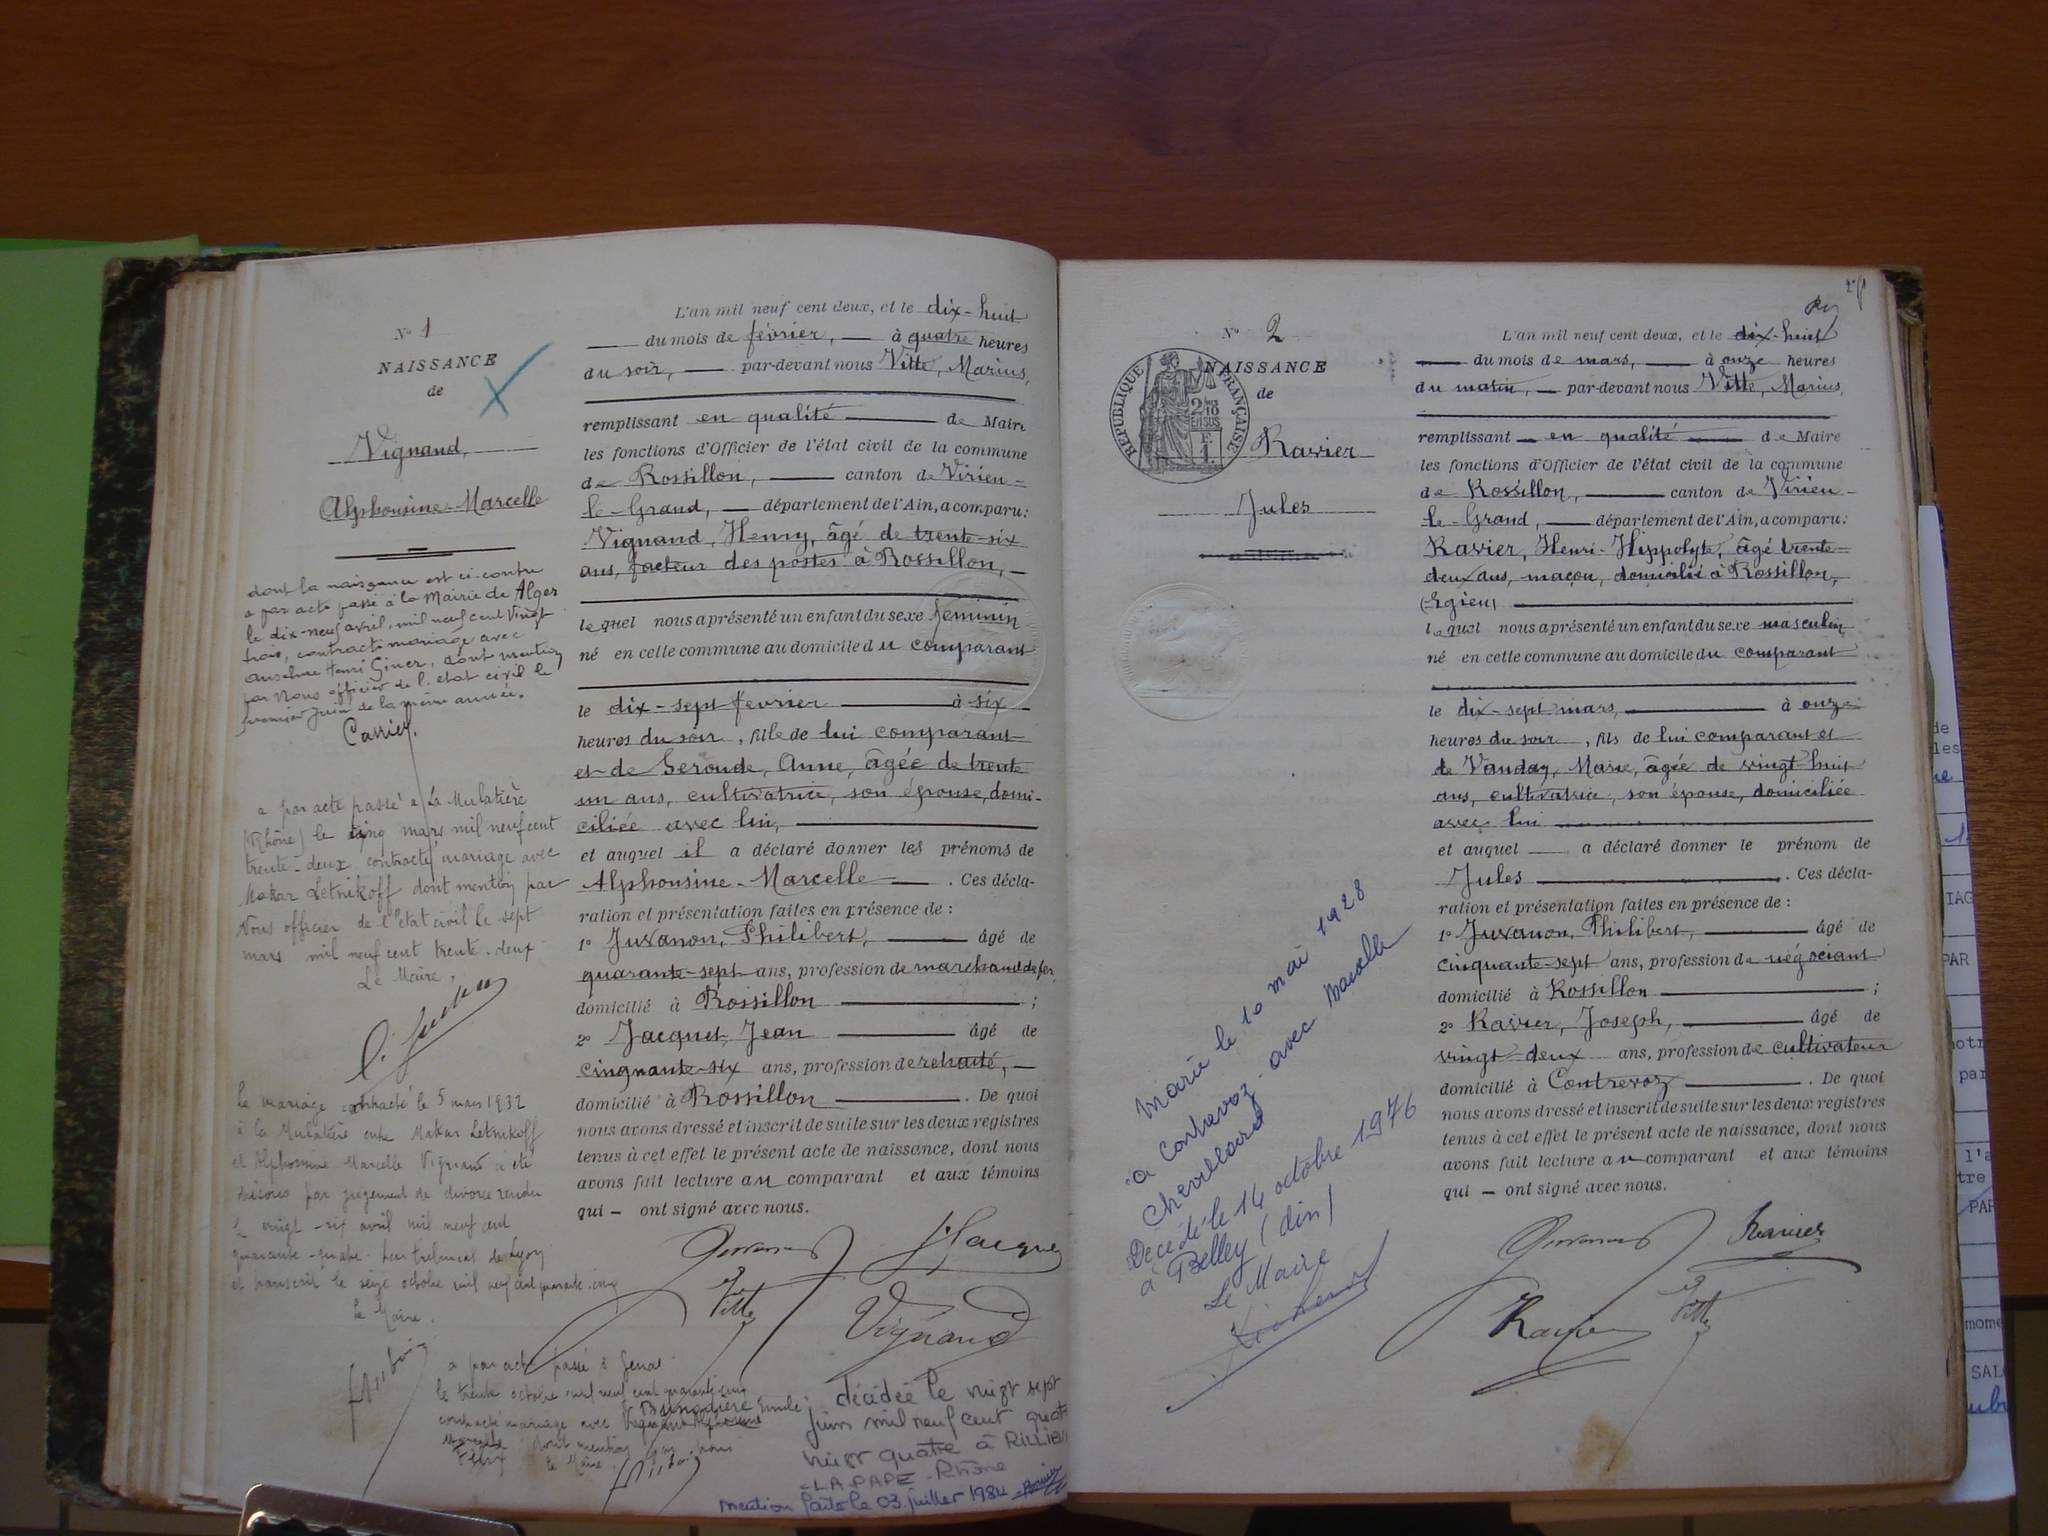 N° 1
NAISSANCE
de
Vignand,
Alphonsine-Marcelle
dont la naissance est ci-contre
a par acte passé à la Mairie de Alger
le dix-neuf avril, mil neuf cent vingt
trois, contracté mariage avec
Anselme Henri Giner, dont mention
par Nous officier de l'etat civil le
premier Juin de la même année.
Carrier.
a par acte passé à La Mulatière
(Rhône) le cinq mars mil neuf cent
trente-deux contracté mariage avec
Makar Letnikoff dont mention par
Nous officier de l'état civil le sept
mars mil neuf cent trente-deux
Le Maire,
Le mariage contracté le 5 mars 1932
à la Mulatière entre Makar Letnikoff
et Alphonsine Marcelle Vignand a été
dissous par jugement de divorce rendu
le vingt-six avril mil neuf cent
quarante-quatre par tribunal de Lyon
et transcrit le seize octobre mil neuf cent quarante-cinq
le Maire.
L'an mil neuf cent deux, et le dix-huit
du mois de février, à quatre heures
du soir, par-devant nous Vitte, Marius,
remplissant en qualité de Maire
les fonctions d'Officier de l'état civil de la commune
de Rossillon, canton de Virieu-
le-Grand, département de l'Ain, a comparu:
Vignand, Henry, âgé de trente-six
ans, facteur des postes à Rossillon,
lequel nous a présenté un enfant du sexe féminin
né en cette commune au domicile du comparant
le dix-sept février à six
heures du soir, fille de lui comparant
et de Geroude, Anne, âgée de trente
un ans, cultivatrice, son épouse, domi-
ciliée avec lui,
et auquel il a déclaré donner les prénoms de
Alphonsine-Marcelle. Ces décla-
ration et présentation faites en présence de :
1° Juvanon, Philibert, âgé de
quarante-sept ans, profession de marchand de fer
domicilié à Rossillon ;
2° Jacquet, Jean âgé de
cinquante-six ans, profession de retraité,
domicilié à Rossillon. De quoi
nous avons dressé et inscrit de suite sur les deux registres
tenus à cet effet le présent acte de naissance, dont nous
avons fait lecture au comparant et aux témoins
qui - ont signé avec nous.
Juvanon J. Jacquet
Vitte Vignand
a par acte passé à Genas
le trente octobre mil neuf cent quarante cinq
contracté mariage avec
dont mention par nous
le Maire.
décédée le vingt sept
juin mil neuf cent quatre
vingt quatre à RILLIEUX
-LA-PAPE - Rhône
mention faite le 03 juillet 1984
N° 2
NAISSANCE
de
RÉPUBLIQUE FRANÇAISE
Ravier
Jules
Marié le 10 mai 1928
à Contrevoz avec Marcelle
Chevillard
Décédé le 14 octobre 1976
à Belley (Ain)
Le Maire
L'an mil neuf cent deux, et le dix-huit
du mois de mars, à onze heures
du matin, par-devant nous Vitte, Marius,
remplissant en qualité de Maire
les fonctions d'Officier de l'état civil de la commune
de Rossillon, canton de Virieu-
le-Grand, département de l'Ain, a comparu:
Ravier, Henri-Hippolyte, âgé trente-
deux ans, maçon, domicilié à Rossillon,
(Egieu)
lequel nous a présenté un enfant du sexe masculin
né en cette commune au domicile du comparant
le dix-sept mars, à onze
heures du soir, fils de lui comparant et
de Vanday, Marie, âgée de vingt-huit
ans, cultivatrice, son épouse, domiciliée
avec lui
et auquel a déclaré donner le prénom de
Jules. Ces décla-
ration et présentation faites en présence de :
1° Juvanon, Philibert, âgé de
cinquante-sept ans, profession de négociant
domicilié à Rossillon ;
2° Ravier, Joseph, âgé de
vingt-deux ans, profession de cultivateur
domicilié à Contrevoz. De quoi
nous avons dressé et inscrit de suite sur les deux registres
tenus à cet effet le présent acte de naissance, dont nous
avons fait lecture au comparant et aux témoins
qui - ont signé avec nous.
Juvanon Ravier
Ravier Vitte